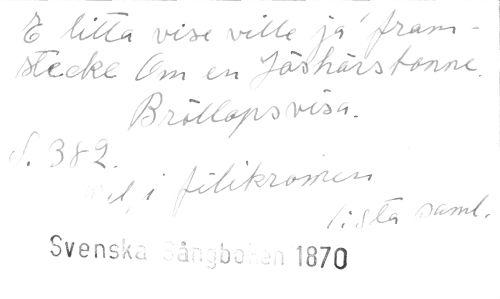 E litta vise ville ja' fram-
stecke Om en Jöshärsbonne.
Bröllopsvisa.
S. 382.
i filikromen
1:sta saml.
Svenska Sångboken 1870